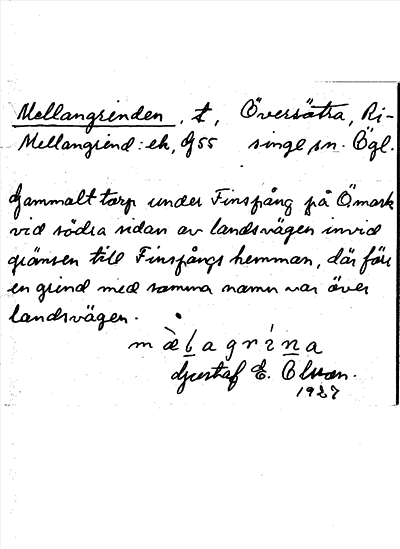 Mellangrinden, t, Översätra, Ri-
Mellangrind: ek, Gj 55 singe sn. Ögl.
Gammalt torp under Finspång på Ömark
vid södra sidan av landsvägen invid
gränsen till Finspångs hemman, där förr
en grind med samma namn var över
landsvägen.
m è l a g r i n a
Gustaf E. Olsson.
1927